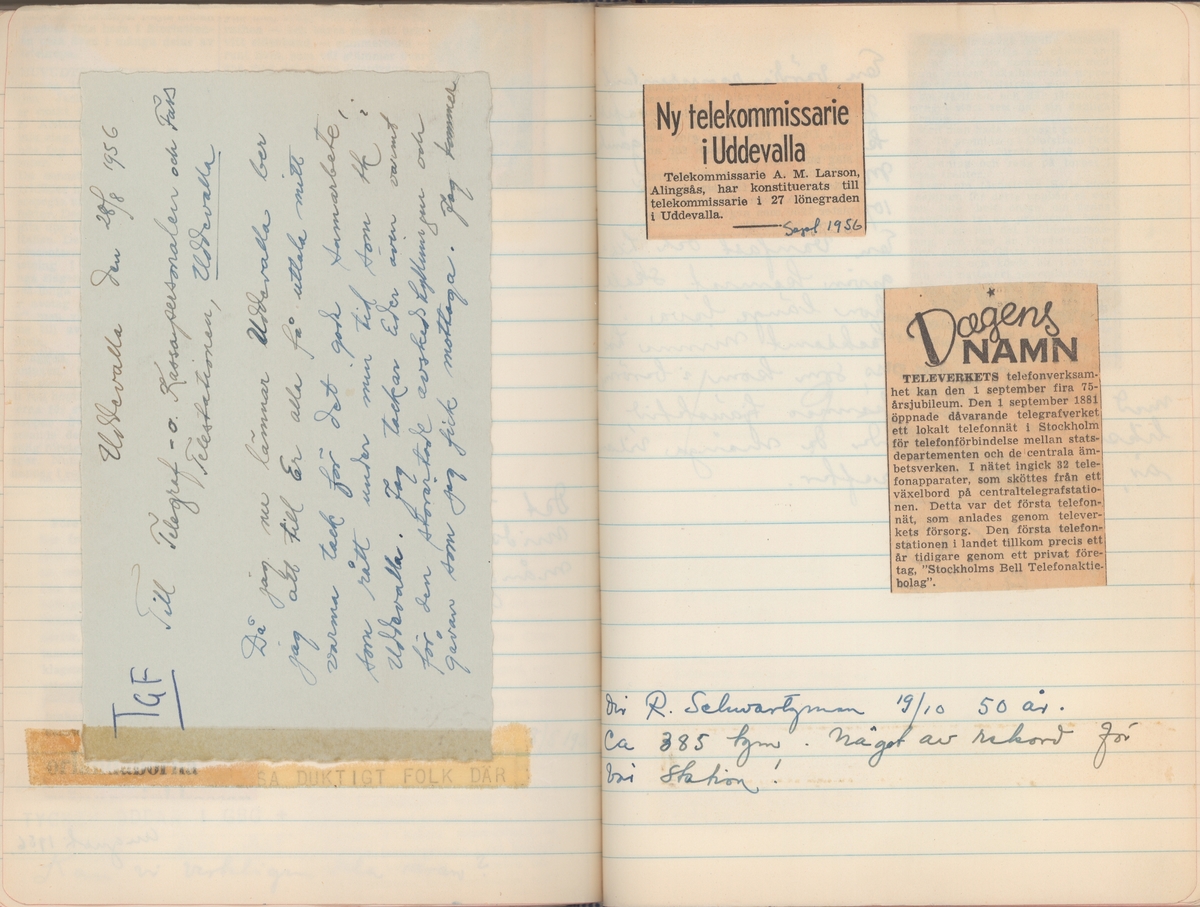 Uddevalla den 28/8 1956
TGF
Till Telegraf- o. Kassapersonalen och Fass
Telestationen, Uddevalla
Då jag nu lämnar Uddevalla ber
jag att till Er alla få uttala mitt
varma tack för det goda samarbete,
som rått under min tid som tk i
Uddevalla. Jag tackar Eder även varmt
för den storartade avskedshyllningen och
gåvan som jag fick mottaga. Jag kommer
SA DUKTIGT FOLK DÄR
Ny telekommissarie
i Uddevalla
Telekommissarie A. M. Larson,
Alingsås, har konstituerats till
telekommissarie i 27 lönegraden
i Uddevalla.
Sept 1956
Dagens
NAMN
TELEVERKETS telefonverksam-
het kan den 1 september fira 75-
årsjubileum. Den 1 september 1881
öppnade dåvarande telegrafverket
ett lokalt telefonnät i Stockholm
för telefonförbindelse mellan stats-
departementen och de centrala äm-
betsverken. I nätet ingick 32 tele-
fonapparater, som sköttes från ett
växelbord på centraltelegrafstatio-
nen. Detta var det första telefon-
nät, som anlades genom telever-
kets försorg. Den första telefon-
stationen i landet tillkom precis ett
år tidigare genom ett privat före-
tag, "Stockholms Bell Telefonaktie-
bolag".
Dir R. Schwartzman 19/10 50 år.
Ca 385 tgm. Något av rekord för
vår station!